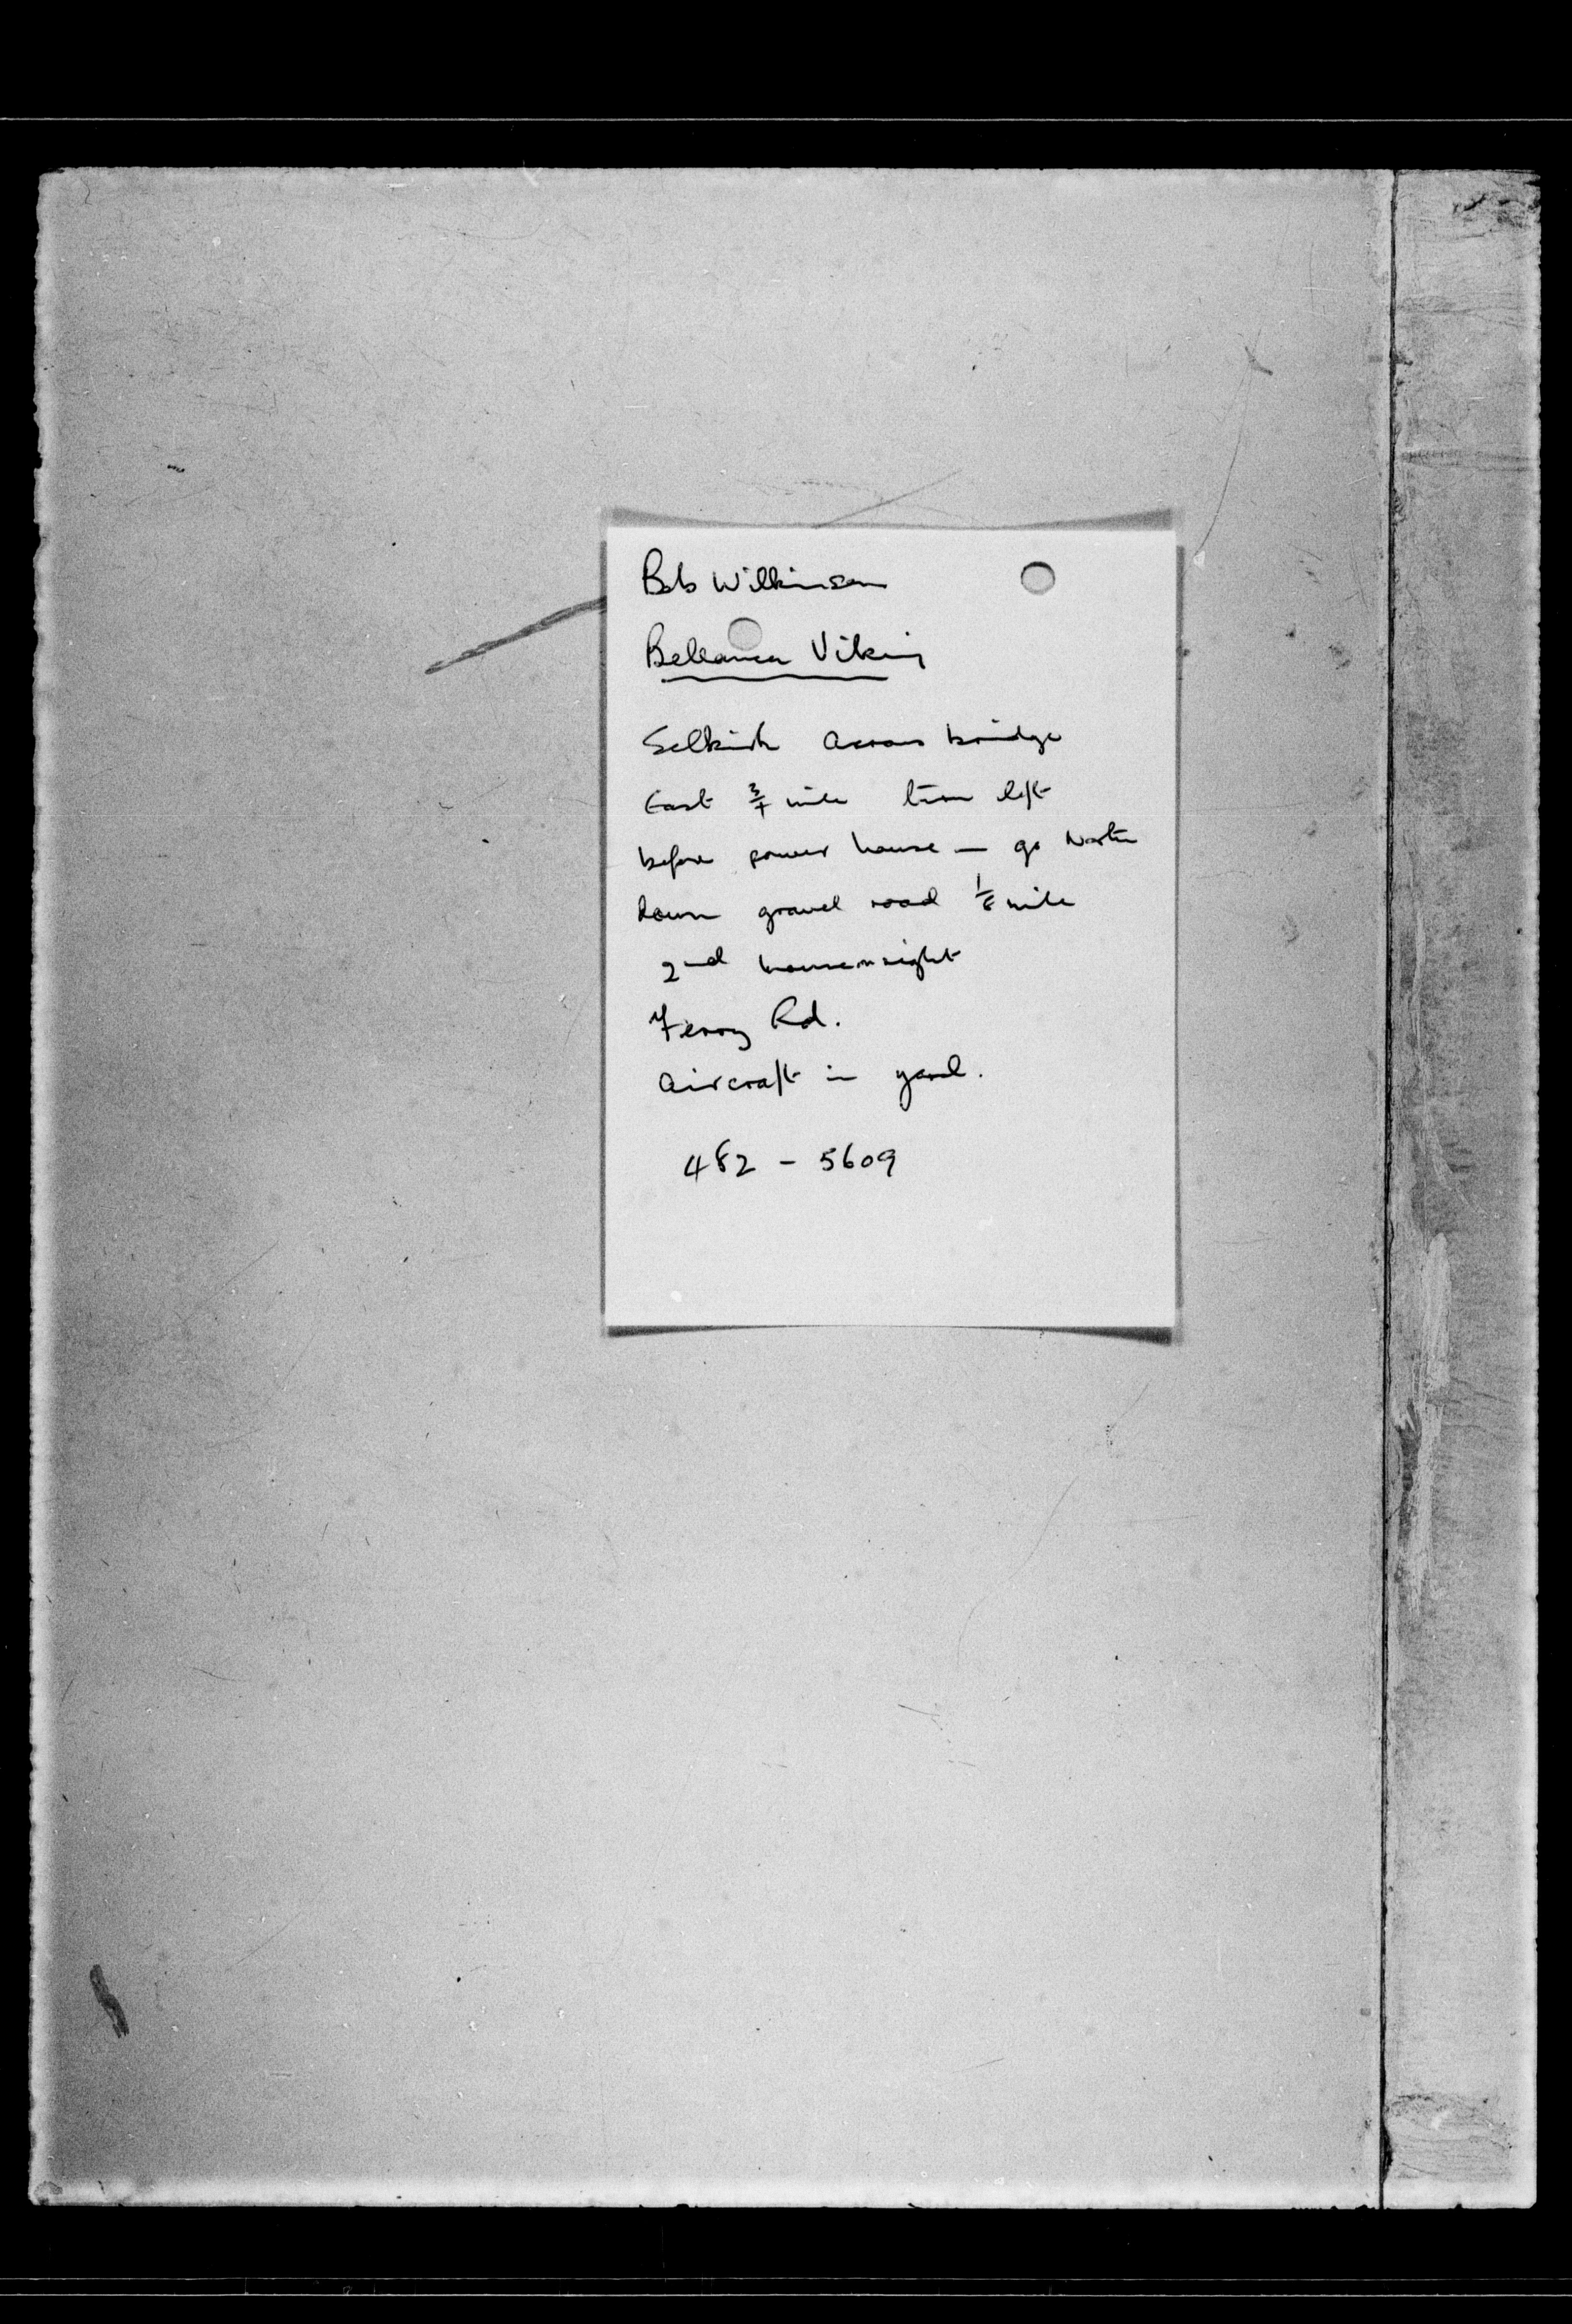 Bob Wilkinson
Bellanca Viking
Selkirk Across bridge
East 3/4 mile turn left
before power house — go North
down gravel road 1/8 mile
2nd house on right
Ferry Rd.
Aircraft in yard.
482 - 5609